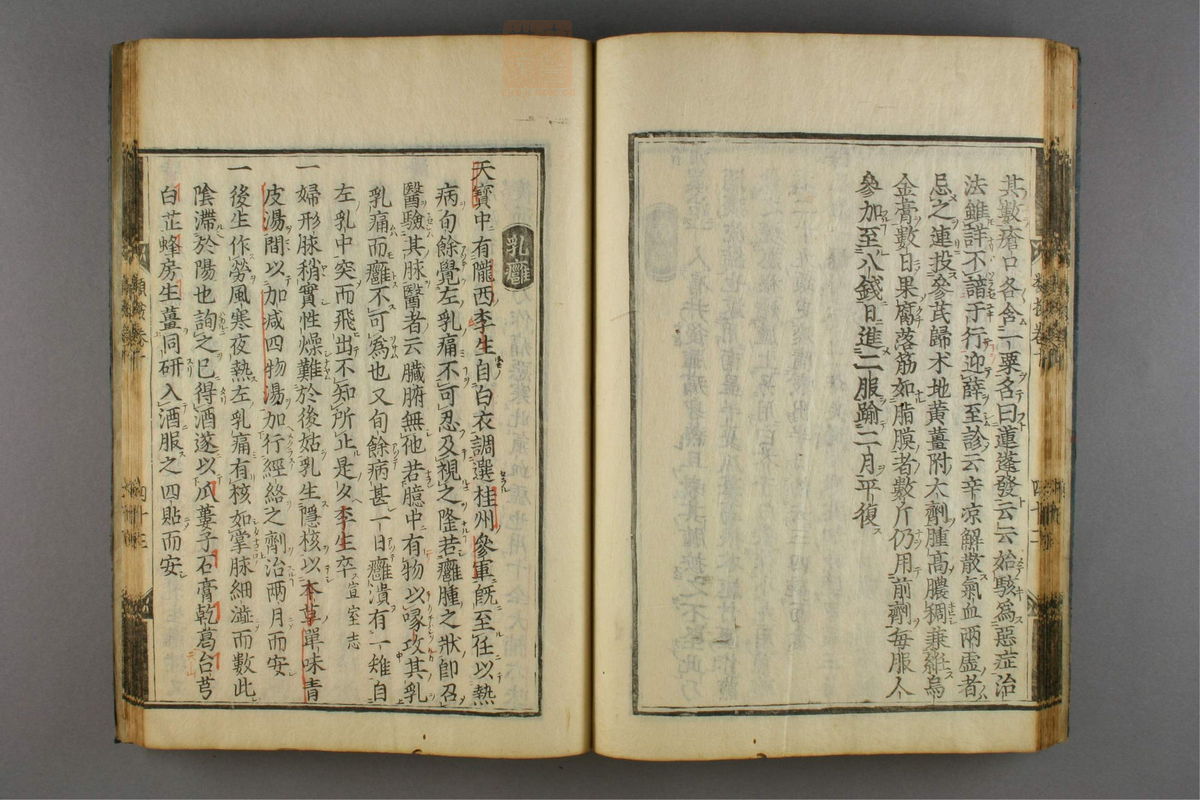 其數瘡口各含一粟名曰蓮蓬發云云始駭爲惡症治
法雖詳不諳于行迎薛至診云辛凉解散氣血兩虛者
忌之連投參芪歸术地黃薑附大劑腫高膿稠兼維烏
金膏數日果腐落筋如脂膜者數斤仍用前劑每服人
參加至八錢日進二服踰二月平復
乳癰
天寶中有隴西李生自白衣調選桂州參軍旣至任以熱
病旬餘覺左乳痛不可忍及視之隆若癰腫之狀卽召
醫驗其脉醫者云臟腑無他若臆中有物以喙攻其乳
乳痛而癰不可爲也又旬餘病甚一日癰潰有一雉自
左乳中突而飛出不知所止是夕李生卒宣室志
一婦形脉稍實性燥難於後姑乳生隱核以本草單味青
皮湯間以加减四物湯加行經絡之劑治兩月而安
一後生作勞風寒夜熱左乳痛有核如掌脉細澁而數此
陰滯於陽也詢之已得酒遂以瓜蔞子石膏乾葛台芎
白芷蜂房生薑同研入酒服之四貼而安
類案卷十
四十三